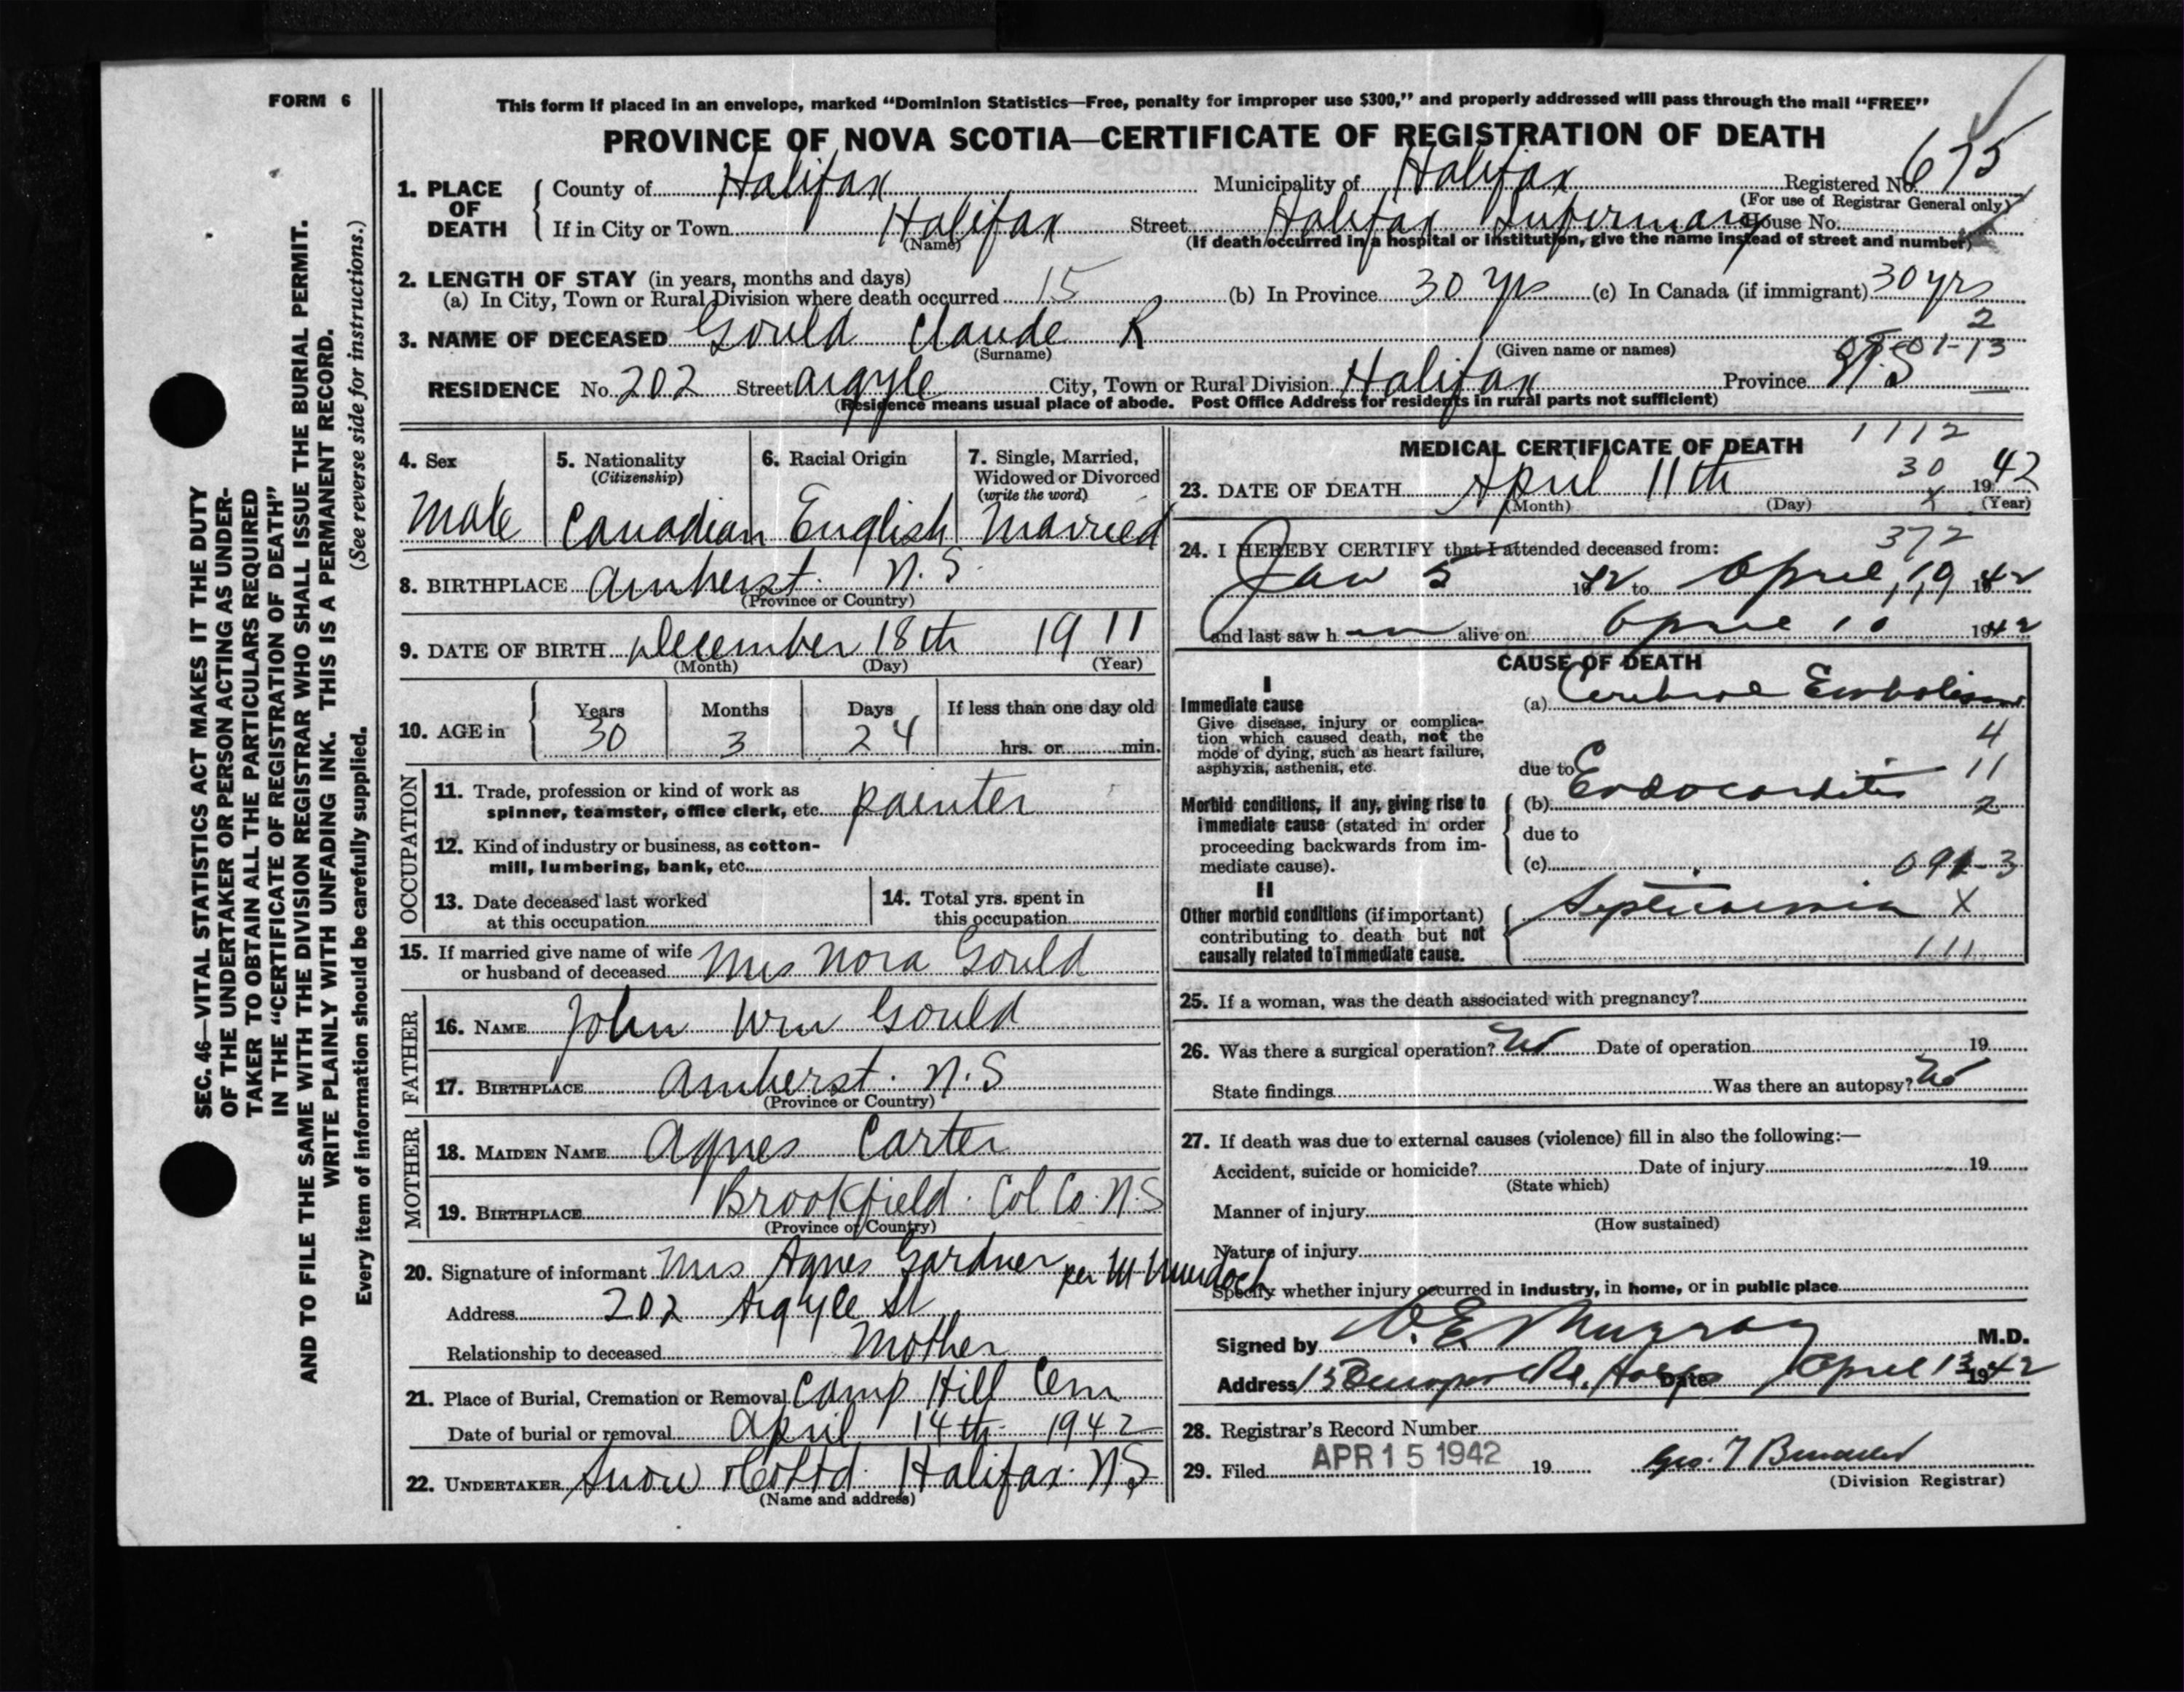 FORM 6
This form if placed in an envelope, marked “Dominion Statistics—Free, penalty for improper use $300,” and properly addressed will pass through the mail “FREE”
PROVINCE OF NOVA SCOTIA—CERTIFICATE OF REGISTRATION OF DEATH
1. PLACE OF DEATH County of Halifax Municipality of Halifax Registered No. 675
(For use of Registrar General only)
If in City or Town Halifax Street Halifax Infirmary House No.
(Name) (If death occurred in a hospital or institution, give the name instead of street and number)
2. LENGTH OF STAY (in years, months and days)
(a) In City, Town or Rural Division where death occurred 15 (b) In Province 30 yrs (c) In Canada (if immigrant) 30 yrs
2
3. NAME OF DECEASED Gould Claude R
(Surname) (Given name or names) -01-13
RESIDENCE No. 202 Street Argyle City, Town or Rural Division Halifax Province N.S
(Residence means usual place of abode. Post Office Address for residents in rural parts not sufficient)
4. Sex 5. Nationality (Citizenship) 6. Racial Origin 7. Single, Married, Widowed or Divorced (write the word)
Male Canadian English Married
8. BIRTHPLACE Amherst. N.S.
(Province or Country)
9. DATE OF BIRTH December 18th 1911
(Month) (Day) (Year)
10. AGE in Years Months Days If less than one day old
30 3 24 hrs. or min.
OCCUPATION
11. Trade, profession or kind of work as
spinner, teamster, office clerk, etc. painter
12. Kind of industry or business, as cotton-
mill, lumbering, bank, etc.
13. Date deceased last worked
at this occupation
14. Total yrs. spent in
this occupation
15. If married give name of wife
or husband of deceased Mrs Nora Gould
FATHER
16. NAME John Wm Gould
17. BIRTHPLACE Amherst. N.S
(Province or Country)
MOTHER
18. MAIDEN NAME Agnes Carter
19. BIRTHPLACE Brookfield. Col Co. N.S
(Province or Country)
20. Signature of informant Mrs Agnes Gardner per M Murdoch
Address 202 Argyle St
Relationship to deceased Mother
21. Place of Burial, Cremation or Removal Camp Hill Cem
Date of burial or removal April 14th 1942
22. UNDERTAKER Snow & Co Ltd. Halifax. N.S
(Name and address)
MEDICAL CERTIFICATE OF DEATH 1112
30
23. DATE OF DEATH April 11th 1942
(Month) (Day) (Year)
372
24. I HEREBY CERTIFY that I attended deceased from:
Jan 5 1942 to April 1942
and last saw h alive on April 10 1942
CAUSE OF DEATH
I
Immediate cause
Give disease, injury or complica-
tion which caused death, not the
mode of dying, such as heart failure,
asphyxia, asthenia, etc.
(a) Cerebral Embolism
4
due to 11
Morbid conditions, if any, giving rise to
immediate cause (stated in order
proceeding backwards from im-
mediate cause).
(b) Endocarditis 2
due to
(c) -3
II
Other morbid conditions (if important)
contributing to death but not
causally related to immediate cause.
Septicaemia X
111
25. If a woman, was the death associated with pregnancy?
26. Was there a surgical operation? No Date of operation 19
State findings Was there an autopsy? No
27. If death was due to external causes (violence) fill in also the following:—
Accident, suicide or homicide? Date of injury 19
(State which)
Manner of injury
(How sustained)
Nature of injury
Specify whether injury occurred in industry, in home, or in public place
Signed by Murray M.D.
Address Date April 13 1942
28. Registrar's Record Number
29. Filed APR 15 1942 19 Geo. T
(Division Registrar)
SEC. 46—VITAL STATISTICS ACT MAKES IT THE DUTY
OF THE UNDERTAKER OR PERSON ACTING AS UNDER-
TAKER TO OBTAIN ALL THE PARTICULARS REQUIRED
IN THE “CERTIFICATE OF REGISTRATION OF DEATH”
AND TO FILE THE SAME WITH THE DIVISION REGISTRAR WHO SHALL ISSUE THE BURIAL PERMIT.
WRITE PLAINLY WITH UNFADING INK. THIS IS A PERMANENT RECORD.
Every item of information should be carefully supplied. (See reverse side for instructions.)